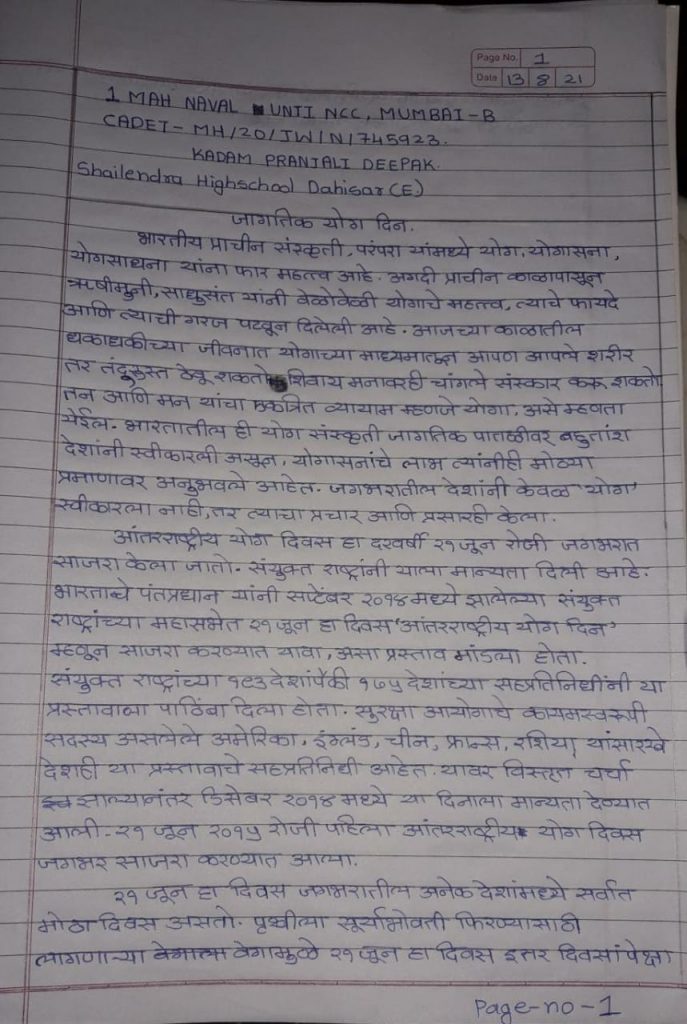 Page No. 1
Date 13 8 21
1 MAH NAVAL UNIT NCC, MUMBAI-B
CADET- MH/20/JW/N/745923.
KADAM PRANJALI DEEPAK.
Shailendra Highschool Dahisar (E)
जागतिक योग दिन.
भारतीय प्राचीन संस्कृती, परंपरा यांमध्ये योग, योगासना,
योगसाधना यांना फार महत्त्व आहे. अगदी प्राचीन काळापासून
ऋषीमुनी, साधुसंत यांनी वेळोवेळी योगाचे महत्त्व, त्याचे फायदे
आणि त्याची गरज पटवून दिलेली आहे. आजच्या काळातील
धकाधकीच्या जीवनात योगाच्या माध्यमातून आपण आपले शरीर
तर तंदुरुस्त ठेवू शकतो शिवाय मनावरही चांगले संस्कार करू शकतो.
तन आणि मन यांचा एकत्रित व्यायाम म्हणजे योगा, असे म्हणता
येईल. भारतातील ही योग संस्कृती जागतिक पातळीवर बहुतांश
देशांनी स्वीकारली असून, योगासनांचे लाभ त्यांनीही मोठ्या
प्रमाणावर अनुभवले आहेत. जगभरातील देशांनी केवळ 'योग'
स्वीकारला नाही, तर त्याचा प्रचार आणि प्रसारही केला.
आंतरराष्ट्रीय योग दिवस हा दरवर्षी २१ जून रोजी जगभरात
साजरा केला जातो. संयुक्त राष्ट्रांनी याला मान्यता दिली आहे.
भारताचे पंतप्रधान यांनी सप्टेंबर २०१४ मध्ये झालेल्या संयुक्त
राष्ट्रांच्या महासभेत २१ जून हा दिवस 'आंतरराष्ट्रीय योग दिन'
म्हणून साजरा करण्यात यावा, असा प्रस्ताव मांडला होता.
संयुक्त राष्ट्रांच्या १९३ देशांपैकी १७५ देशांच्या सहप्रतिनिधींनी या
प्रस्तावाला पाठिंबा दिला होता. सुरक्षा आयोगाचे कायमस्वरूपी
सदस्य असलेले अमेरिका, इंग्लंड, चीन, फ्रान्स, रशिया यांसारखे
देशही या प्रस्तावाचे सहप्रतिनिधी आहेत. यावर विस्तृत चर्चा
झाल्यानंतर डिसेंबर २०१४ मध्ये या दिनाला मान्यता देण्यात
आली. २१ जून २०१५ रोजी पहिला आंतरराष्ट्रीय योग दिवस
जगभर साजरा करण्यात आला.
२१ जून हा दिवस जगभरातील अनेक देशांमध्ये सर्वात
मोठा दिवस असतो. पृथ्वीला सूर्याभोवती फिरण्यासाठी
लागणाऱ्या वेगामुळे २१ जून हा दिवस इतर दिवसांपेक्षा
Page-no-1